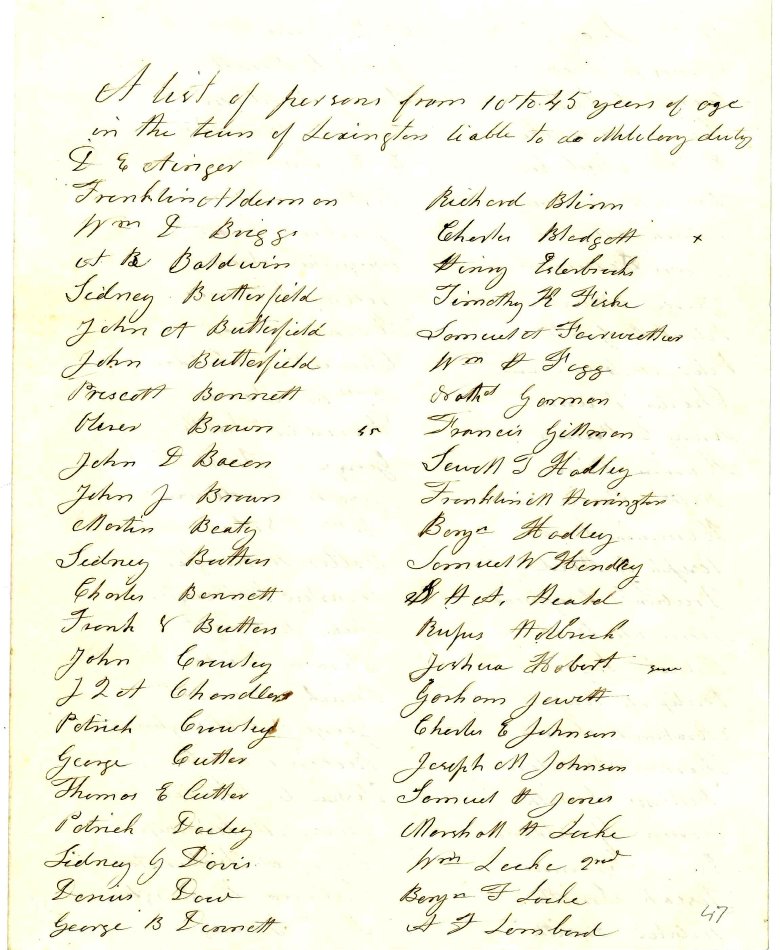 A list of persons from 18 to 45 years of age
in the town of Lexington liable to do Military duty
D E Airger
Franklin Alderman
Wm D Briggs
A B Baldwin
Sidney Butterfield
John A Butterfield
John Butterfield
Prescott Bennett
Oliver Brown 45
John D Bacon
John J Brown
Martin Beaty
Sidney Butters
Charles Bennett
Frank V Butters
John Crowley
J Q A Chandler
Patrick Crowley
George Cutter
Thomas E Cutter
Patrick Dacley
Sidney G Davis
Darius Dow
George B Dennett
Richard Blinn
Charles Blodgett x
Henry Esterbrooks
Timothy K Fiske
Samuel A Fairweather
Wm H Fogg
Nathl Gorman
Francis Gittman
Sewell T Hadley
Franklin M Harrington
Benjn Hadley
Samuel W Hendley
H A. Heald
Rufus Holbrook
Joshua Hobart
Gorham Jewett
Charles E Johnson
Joseph M Johnson
Samuel H Jones
Marshall H Locke
Wm Locke 2nd
Benjn F Locke
A F Lombard
47